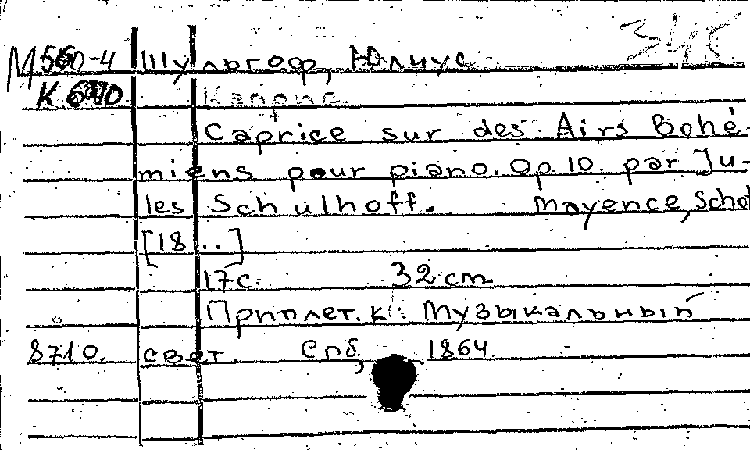 М560-4 Шульгоф, Юлиус 345
К 6710 Каприс
Caprice sur des Airs Bohé-
miens pour piano. Op. 10. par Ju-
les Schulhoff. Mayence, Schot
[18..]
17 с. 32 cm
Приплет. к: Музыкальный
8710. свет. Спб, 1864.